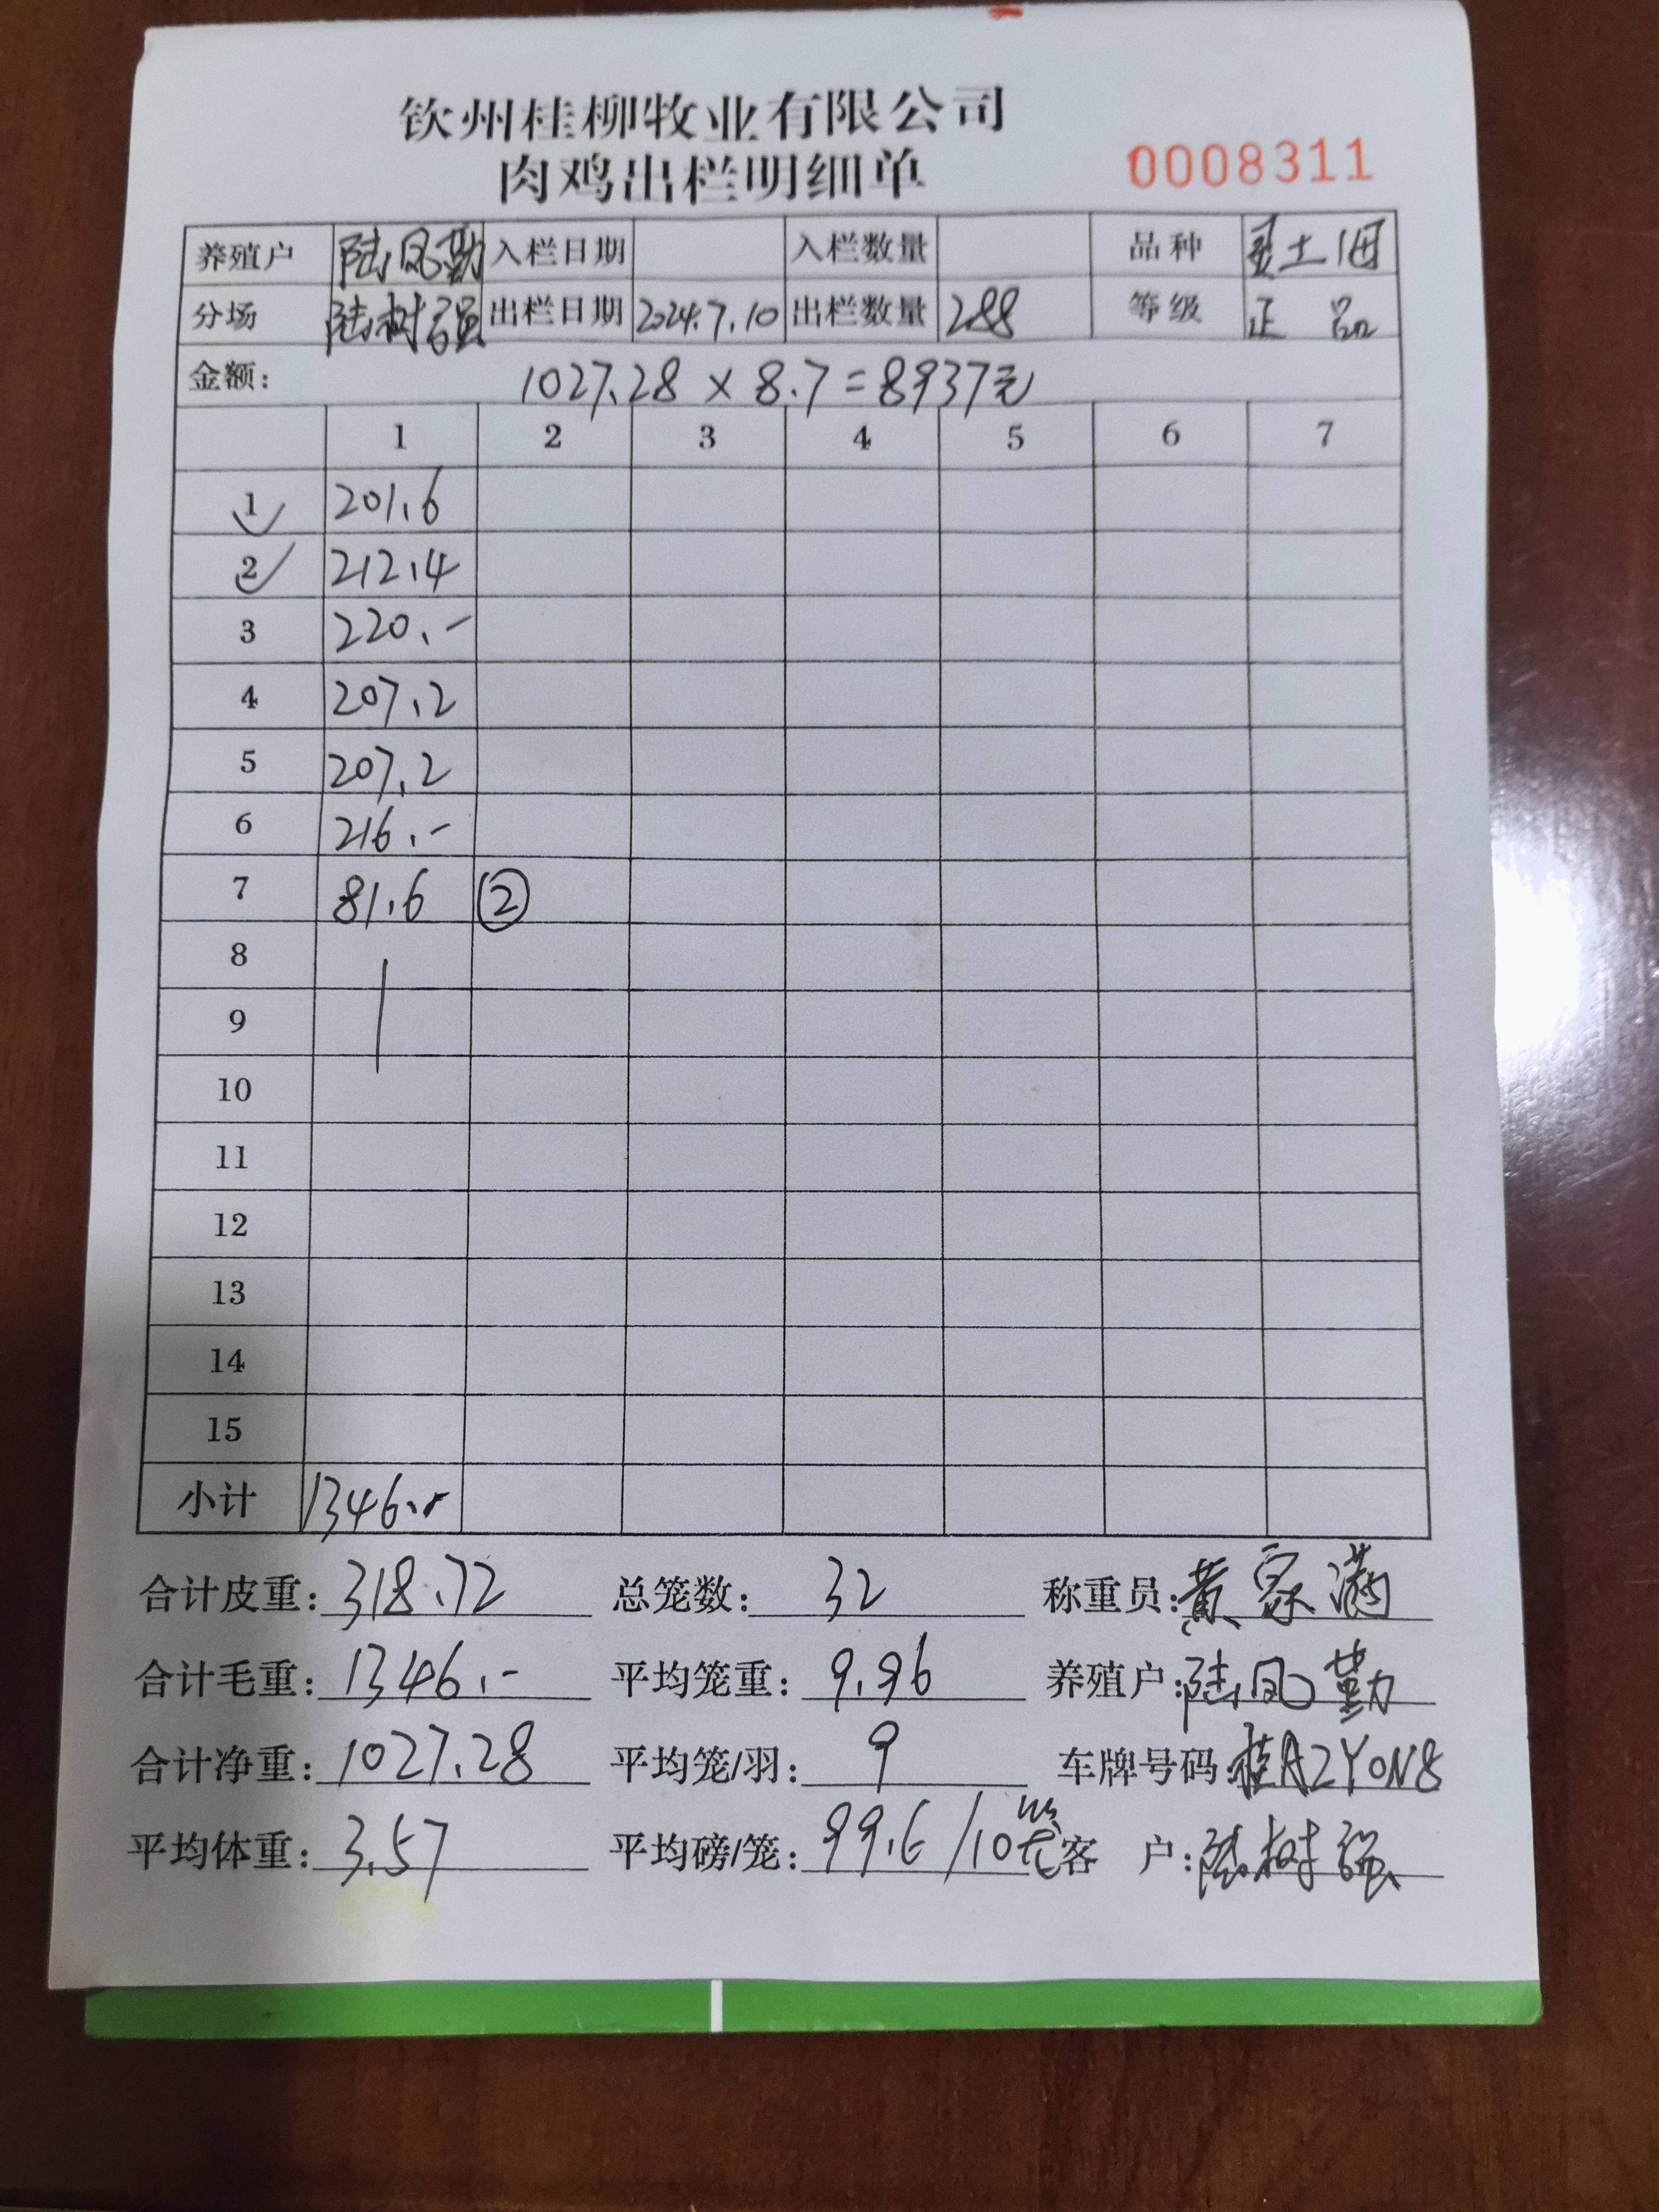 钦州桂柳牧业有限公司
肉鸡出栏明细单
0008311
养殖户 陆凤勤 入栏日期 入栏数量 品种 土
分场 陆树强 出栏日期 2024.7.10 出栏数量 288 等级 正品
金额: 1027.28 × 8.7 = 8937元
1 2 3 4 5 6 7
1 201.6
2 212.4
3 220.-
4 207.2
5 207.2
6 216.-
7 81.6 ②
8
9
10
11
12
13
14
15
小计 1346.-
合计皮重: 318.72 总笼数: 32 称重员: 黄家满
合计毛重: 1346.- 平均笼重: 9.96 养殖户: 陆凤勤
合计净重: 1027.28 平均笼/羽: 9 车牌号码: 桂AZY0N8
平均体重: 3.57 平均磅/笼: 99.6/10笼 客户: 陆树强